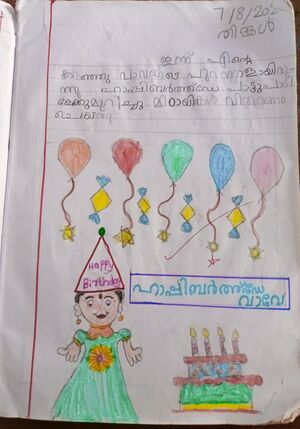 7/8/202
തിങ്കൾ
ഇന്ന് എന്റെ
കുഞ്ഞു വാവയുടെ പുറന്നാളായിരു-
ന്നു ഹാപ്പിബർത്ത്ഡേ പാട്ടുപാടി
കേക്കുമുറിച്ചു മിഠായികൾ വിതരണം
ചെയ്തു
Happy
Birthday
ഹാപ്പിബർത്ത്ഡേ
വാവേ